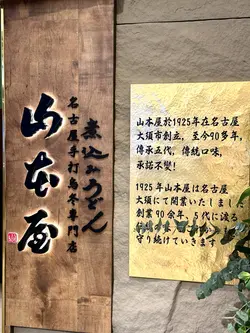 煮込みうどん
名古屋手打烏冬専門店
山本屋
山本屋於1925年在名古屋
大須市創立，至今90多年，
傳承五代，傳統口味，
承諾不變！
1925年山本屋は名古屋
大須にて開業いたしました
創業90余年、5代に渡る
伝統の味
守り続けていきます